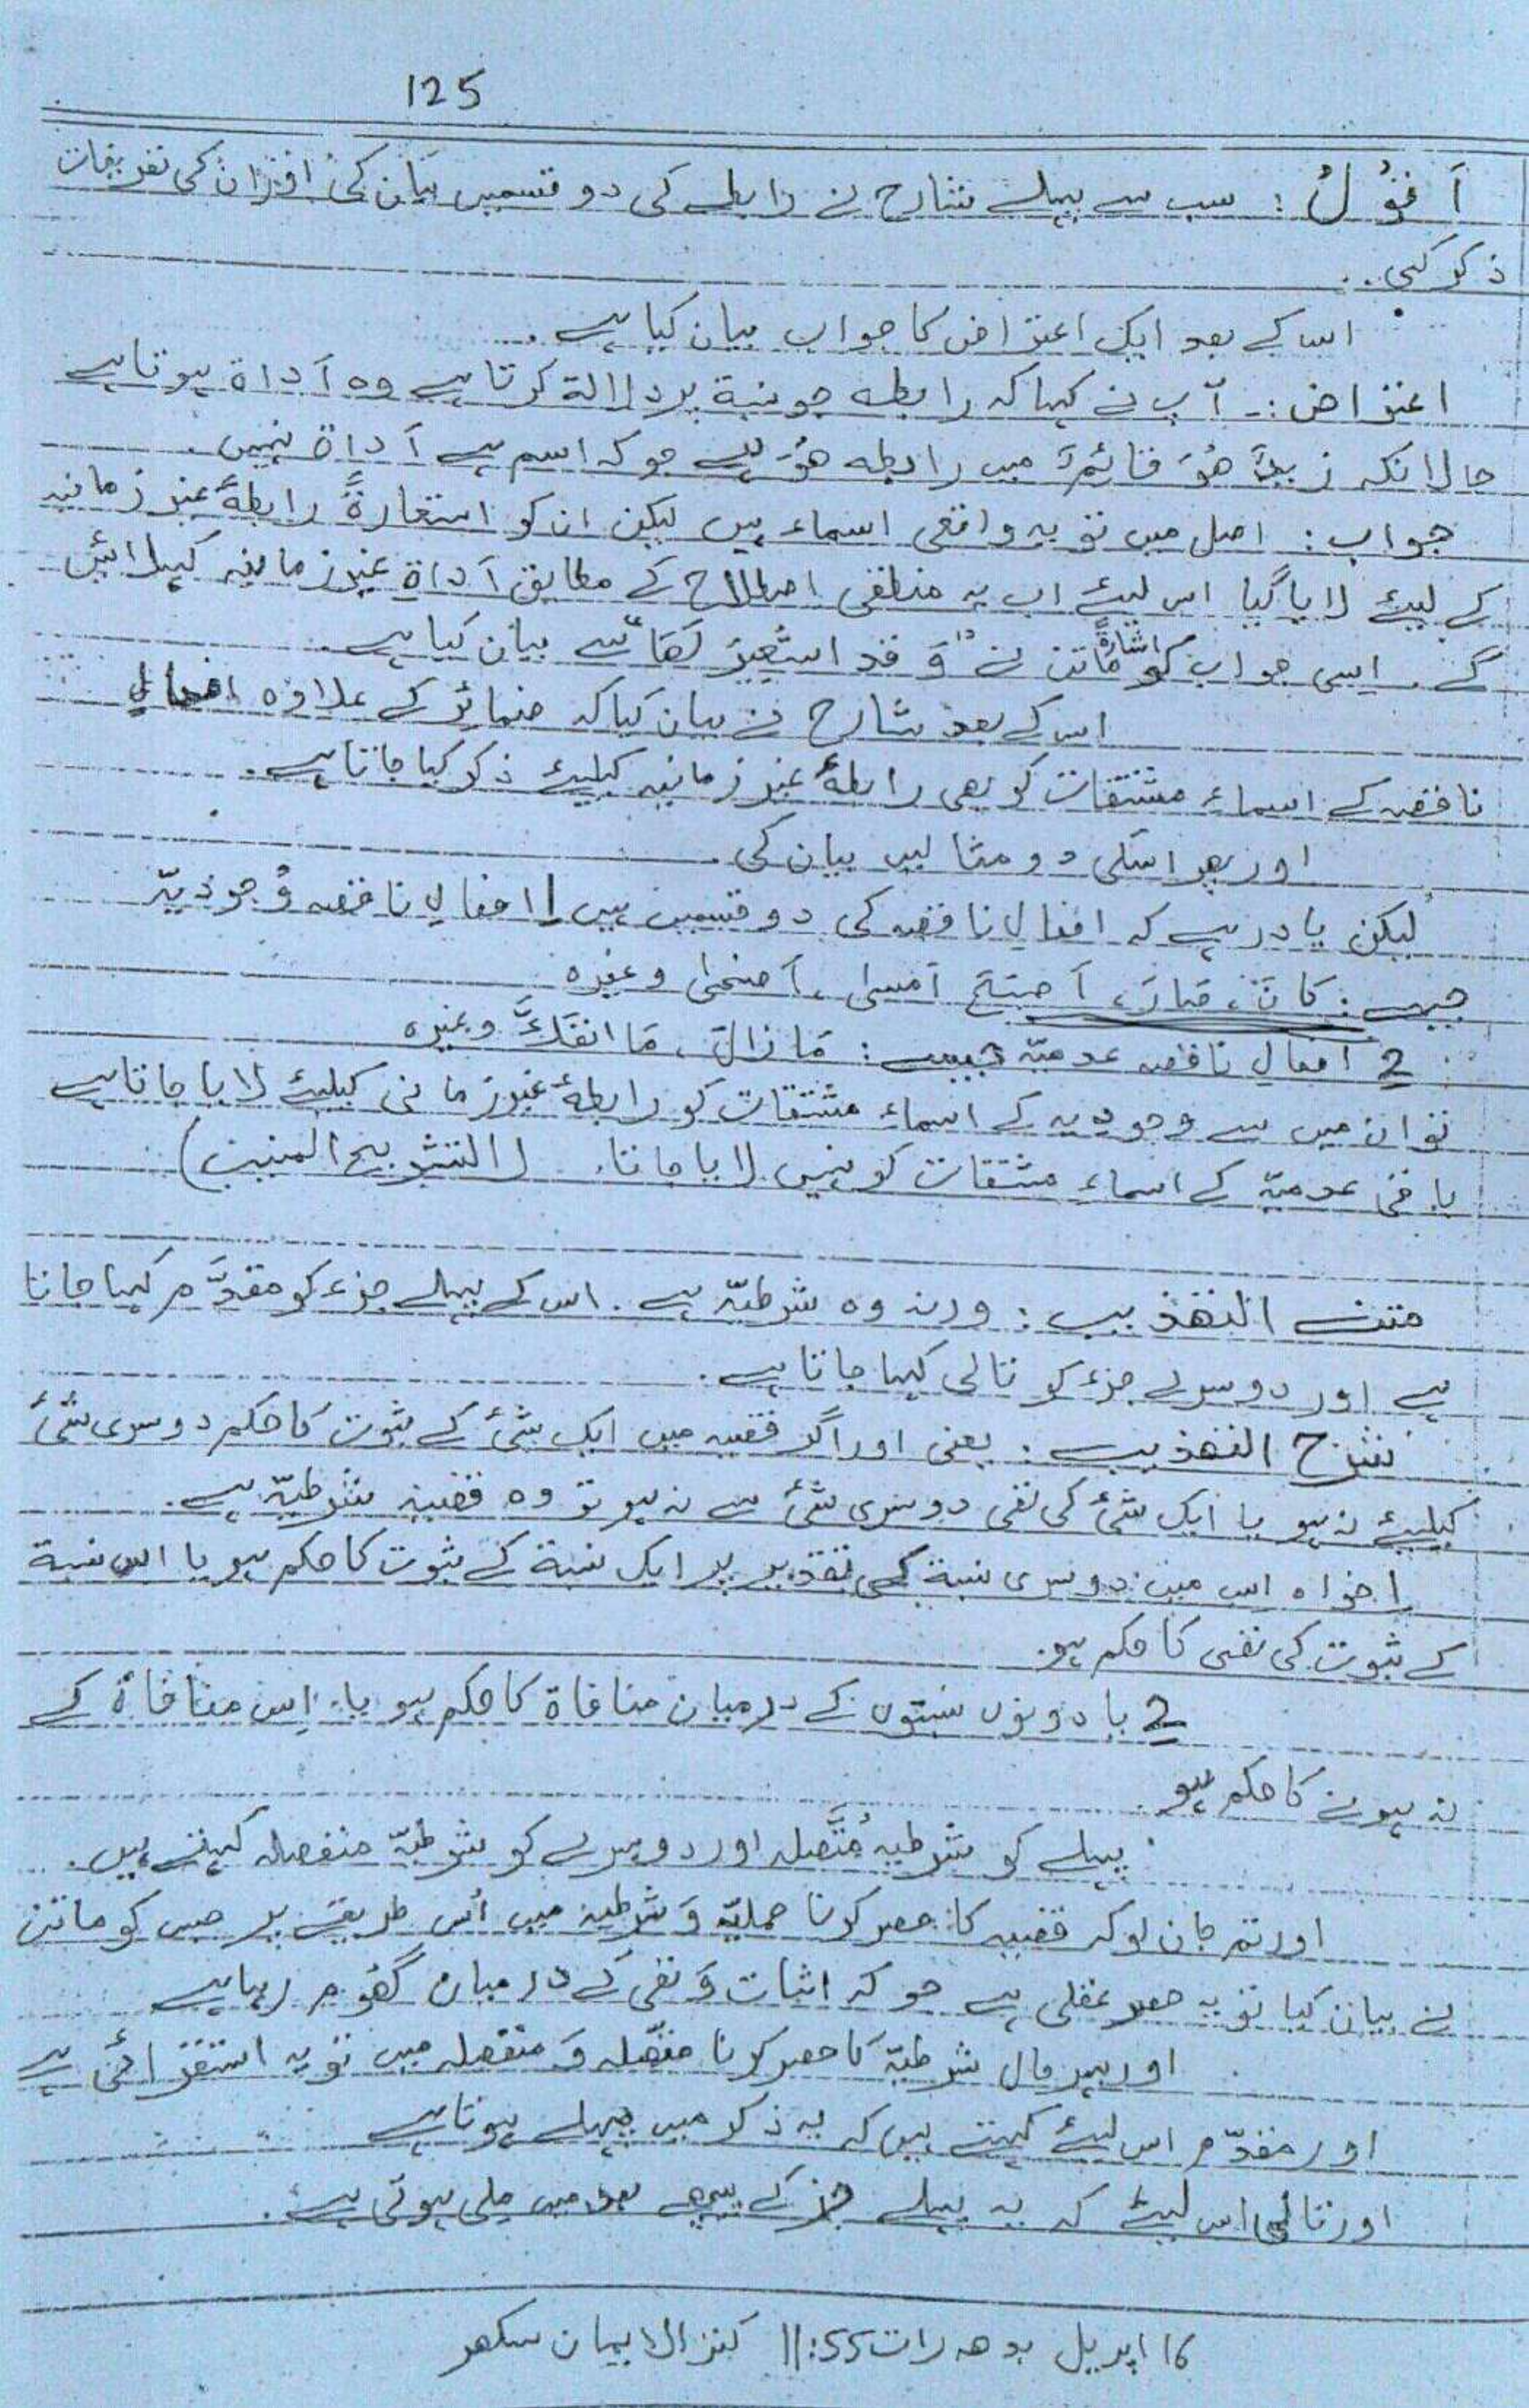 125
اَقُوْلُ : سب سے پہلے شارح نے رابطے کی دو قسمیں بیان کی اور ان کی تعریفات
ذکر کی ..
اس کے بعد ایک اعتراض کا جواب بیان کیا ہے .
اعتراض :- آپ نے کہا کہ رابطہ جو نسبة پر دلالة کرتا ہے وہ اَداة ہوتا ہے
حالانکہ زیدٌ ھُوَ قائِمٌ میں رابطہ ھُوَ ہے جو کہ اسم ہے اَداة نہیں .
جواب : اصل میں تو یہ واقعی اسماء ہیں لیکن ان کو استعارةً رابطۂ غیر زمانیہ
کے لیئے لایا گیا اس لیئے اب یہ منطقی اصطلاح کے مطابق اَداةِ غیر زمانیہ کہلائیں
گے . اسی جواب کو اشارةً ماتن نے "وَ قد استُعِیْرَ لَھَا" سے بیان کیا ہے .
اس کے بعد شارح نے بیان کیا کہ ضمائر کے علاوہ افعالِ
ناقصہ کے اسماءِ مشتقات کو بھی رابطۂ غیر زمانیہ کیلیئے ذکر کیا جاتا ہے .
اور پھر اسکی دو مثالیں بیان کی .
لیکن یاد رہے کہ افعالِ ناقصہ کی دو قسمیں ہیں 1 افعالِ ناقصہ وُجودیّہ
جیسے : کَانَ ، صَارَ ، اَصْبَحَ اَمسٰی ، اَضحٰی وغیرہ
2 افعالِ ناقصہ عدمیّہ جیسے : مَا زالَ ، مَا انفَکَّ وغیرہ
تو ان میں سے وجودیہ کے اسماءِ مشتقات کو رابطۂ غیر زمانی کیلیئے لایا جاتا ہے
باقی عدمیّہ کے اسماءِ مشتقات کو نہیں لایا جاتا . (التشریح المنیب)
متن التھذیب : ورنہ وہ شرطیّہ ہے . اس کے پہلے جزء کو مقدَّم کہا جاتا
ہے اور دوسرے جزء کو تالی کہا جاتا ہے .
شرح التھذیب : یعنی اور اگر قضیہ میں ایک شئ کے ثبوت کا حکم دوسری شئ
کیلیئے نہ ہو یا ایک شئ کی نفی دوسری شئ سے نہ ہو تو وہ قضیہ شرطیّہ ہے .
1 خواہ اس میں دوسری نسبة کی تقدیر پر ایک نسبة کے ثبوت کا حکم ہو یا اس نسبة
کے ثبوت کی نفی کا حکم ہو .
2 یا دونوں نسبتوں کے درمیان منافاة کا حکم ہو یا اِس منافاة کے
نہ ہونے کا حکم ہو .
پہلے کو شرطیہ مُتَّصلہ اور دوسرے کو شرطیّہ منفصلہ کہتے ہیں .
اور تم جان لو کہ قضیہ کا حصر کرنا حملیّہ وَ شرطیہ میں اُس طریقے پر جس کو ماتن
نے بیان کیا تو یہ حصرِ عقلی ہے جو کہ اثبات وَ نفی کے درمیان گھوم رہا ہے
اور بہر حال شرطیّہ کا حصر کرنا متّصلہ وَ منفصلہ میں تو یہ استقرائی ہے
اور مقدّم اس لیئے کہتے ہیں کہ یہ ذکر میں پہلے ہوتا ہے
اور تالی اس لیئے کہ یہ پہلے جز کے پیچھے بعد میں ملی ہوتی ہے .
16 اپریل بدھ رات 11:55 کنز الایمان سکھر